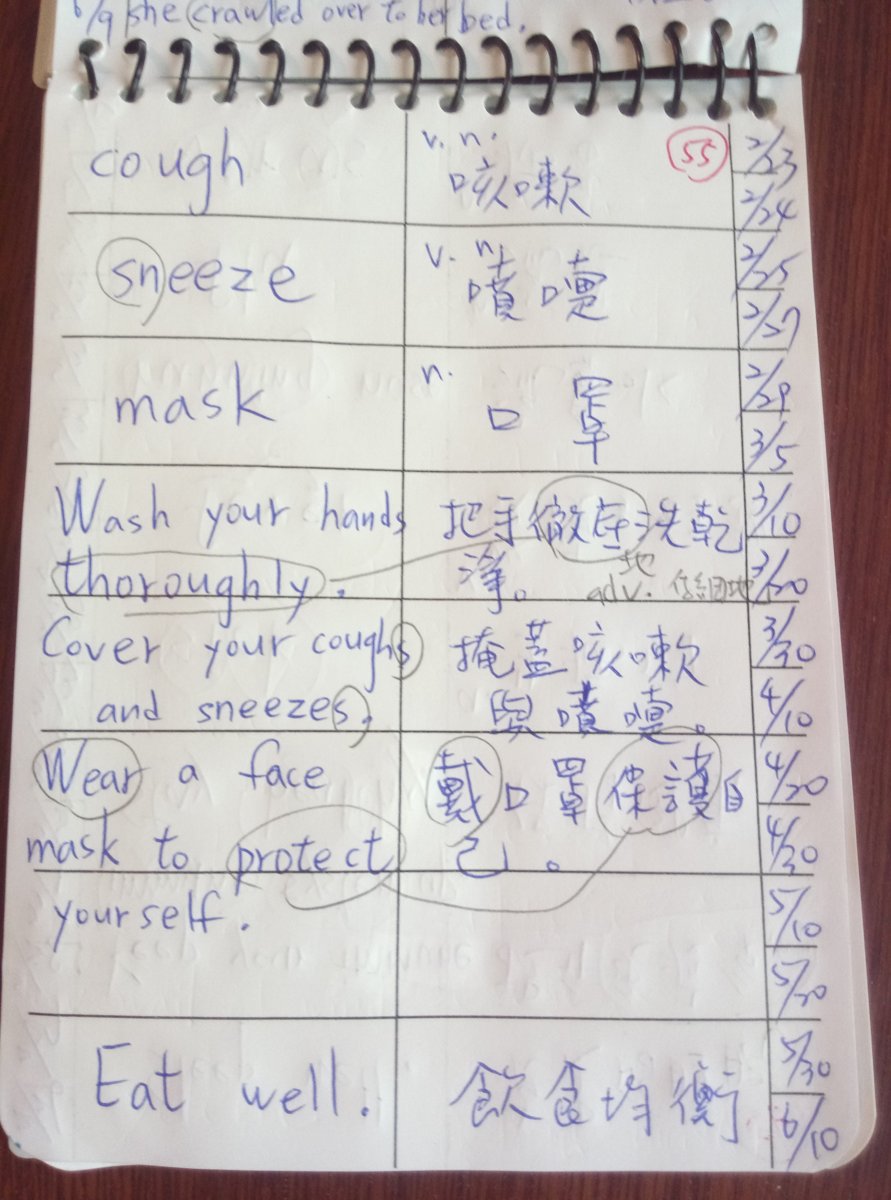 6/9 she crawled over to her bed.
cough
v. n.
咳嗽
55
2/23
2/24
sneeze
v. n.
噴嚏
2/25
2/27
mask
n.
口罩
2/29
3/5
Wash your hands
thoroughly.
把手徹底洗乾
淨。
地
adv.
3/10
3/20
Cover your coughs
and sneezes.
掩蓋咳嗽
與噴嚏。
3/30
4/10
Wear a face
mask to protect
yourself.
戴口罩保護自
己。
4/20
4/30
5/10
5/20
Eat well.
飲食均衡
5/30
6/10